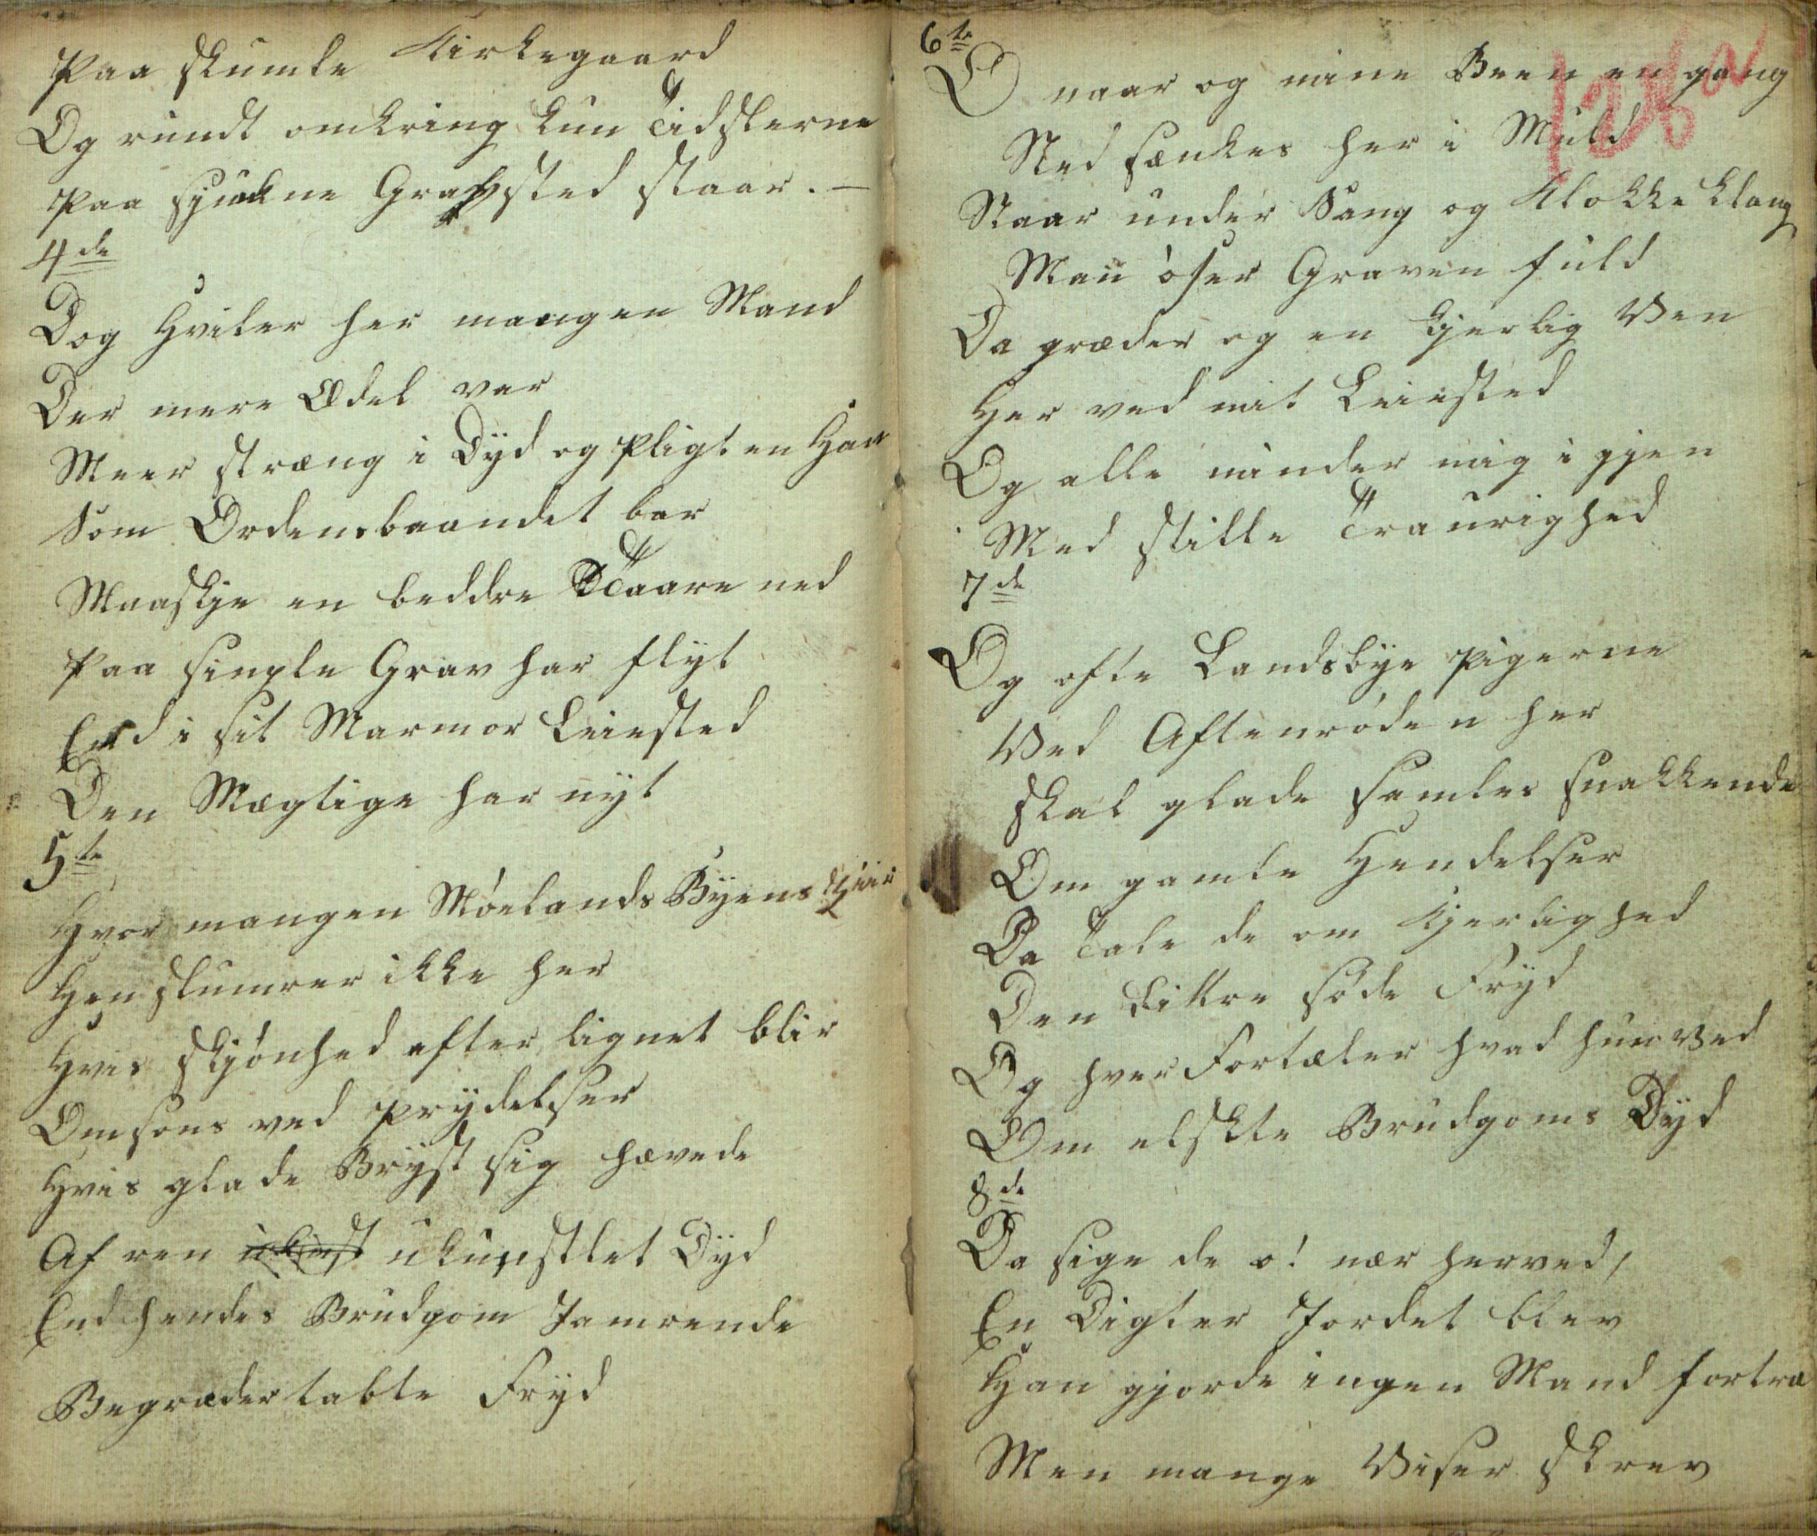 Paa skumle Kirkegaard
Og rundt omkring kun Tidslerne
Paa sjunkne Gravsted staar. –
4de
Dog Hviler her mangen Mand
Der mere Ædel var
Meer stræng i Dyd og Pligt en Han
Som Ordensbaandet bar
Maaskje en beddre Taare ned
Paa simple Grav har flyt
End i sit Marmor Leiested
Den Mægtige har nyt
5te
Hvor mangen Møe Landsbyens
Hen slumrer ikke her
Hvis Skjønhed efter lignet blir
Omsons ved prydelser
Hvis glade Bryst sig hævede
Af ren ukunst ukunstlet Dyd
End hendes Brudgom Jamrende
Begræder tabte Fryd
6te
O naar og mine Been en gang
Ned sænkes her i Muld
Naar under Sang og Klokke klang
Man øser Graven fuld
Da græder og en Kjerlig Ven
Her ved mit Leiested
Og alle minder mig i gjen
Med stille Traurighed
7de
Og ofte Landsbye Pigerne
Ved Aftenrøden her
Skal glade samles snakkende
Om gamle Hendelser
Da Tale de om Kjerlighed
Den Bittre søde Fryd
Og hver Fortæler hvad hun Ved
Om elskte Brudgoms Dyd
8de
Da sige de o! nær herved,
En Digter Jordet blev
Han gjorde ingen Mand fortræ
Men mange Viser skrev
128a